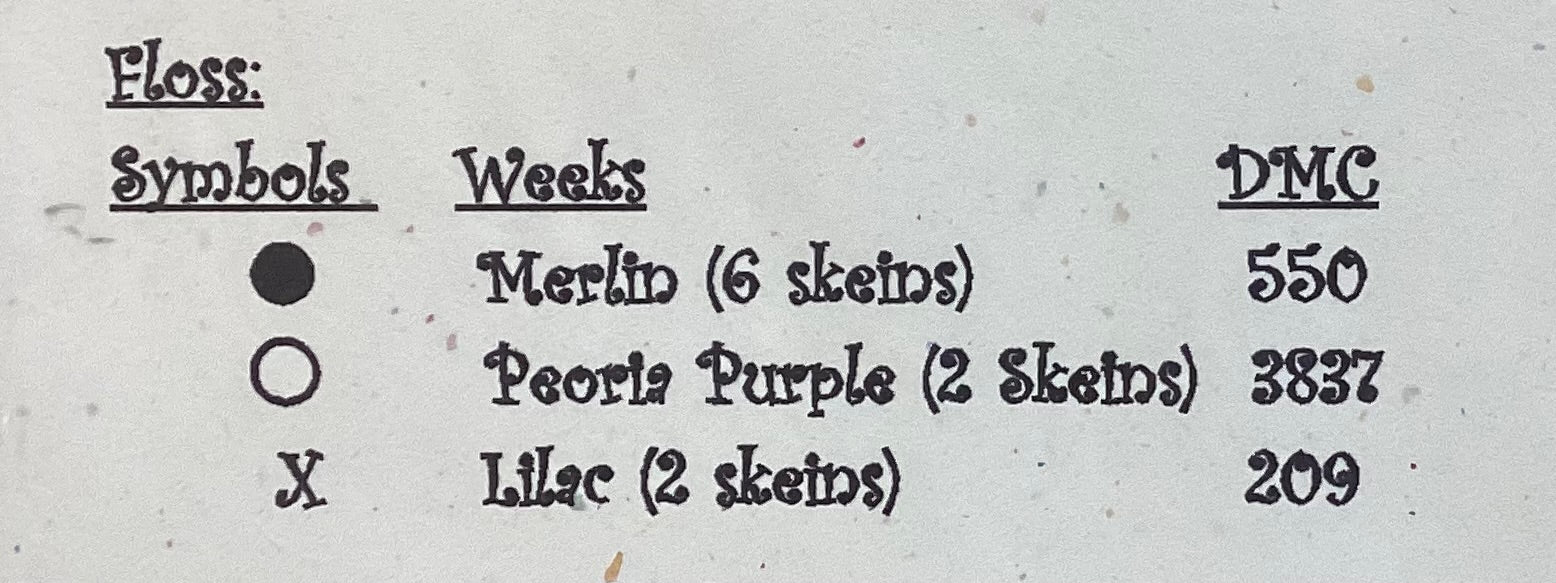 Floss:
Symbols Weeks DMC
● Merlin (6 skeins) 550
○ Peoria Purple (2 Skeins) 3837
X Lilac (2 skeins) 209